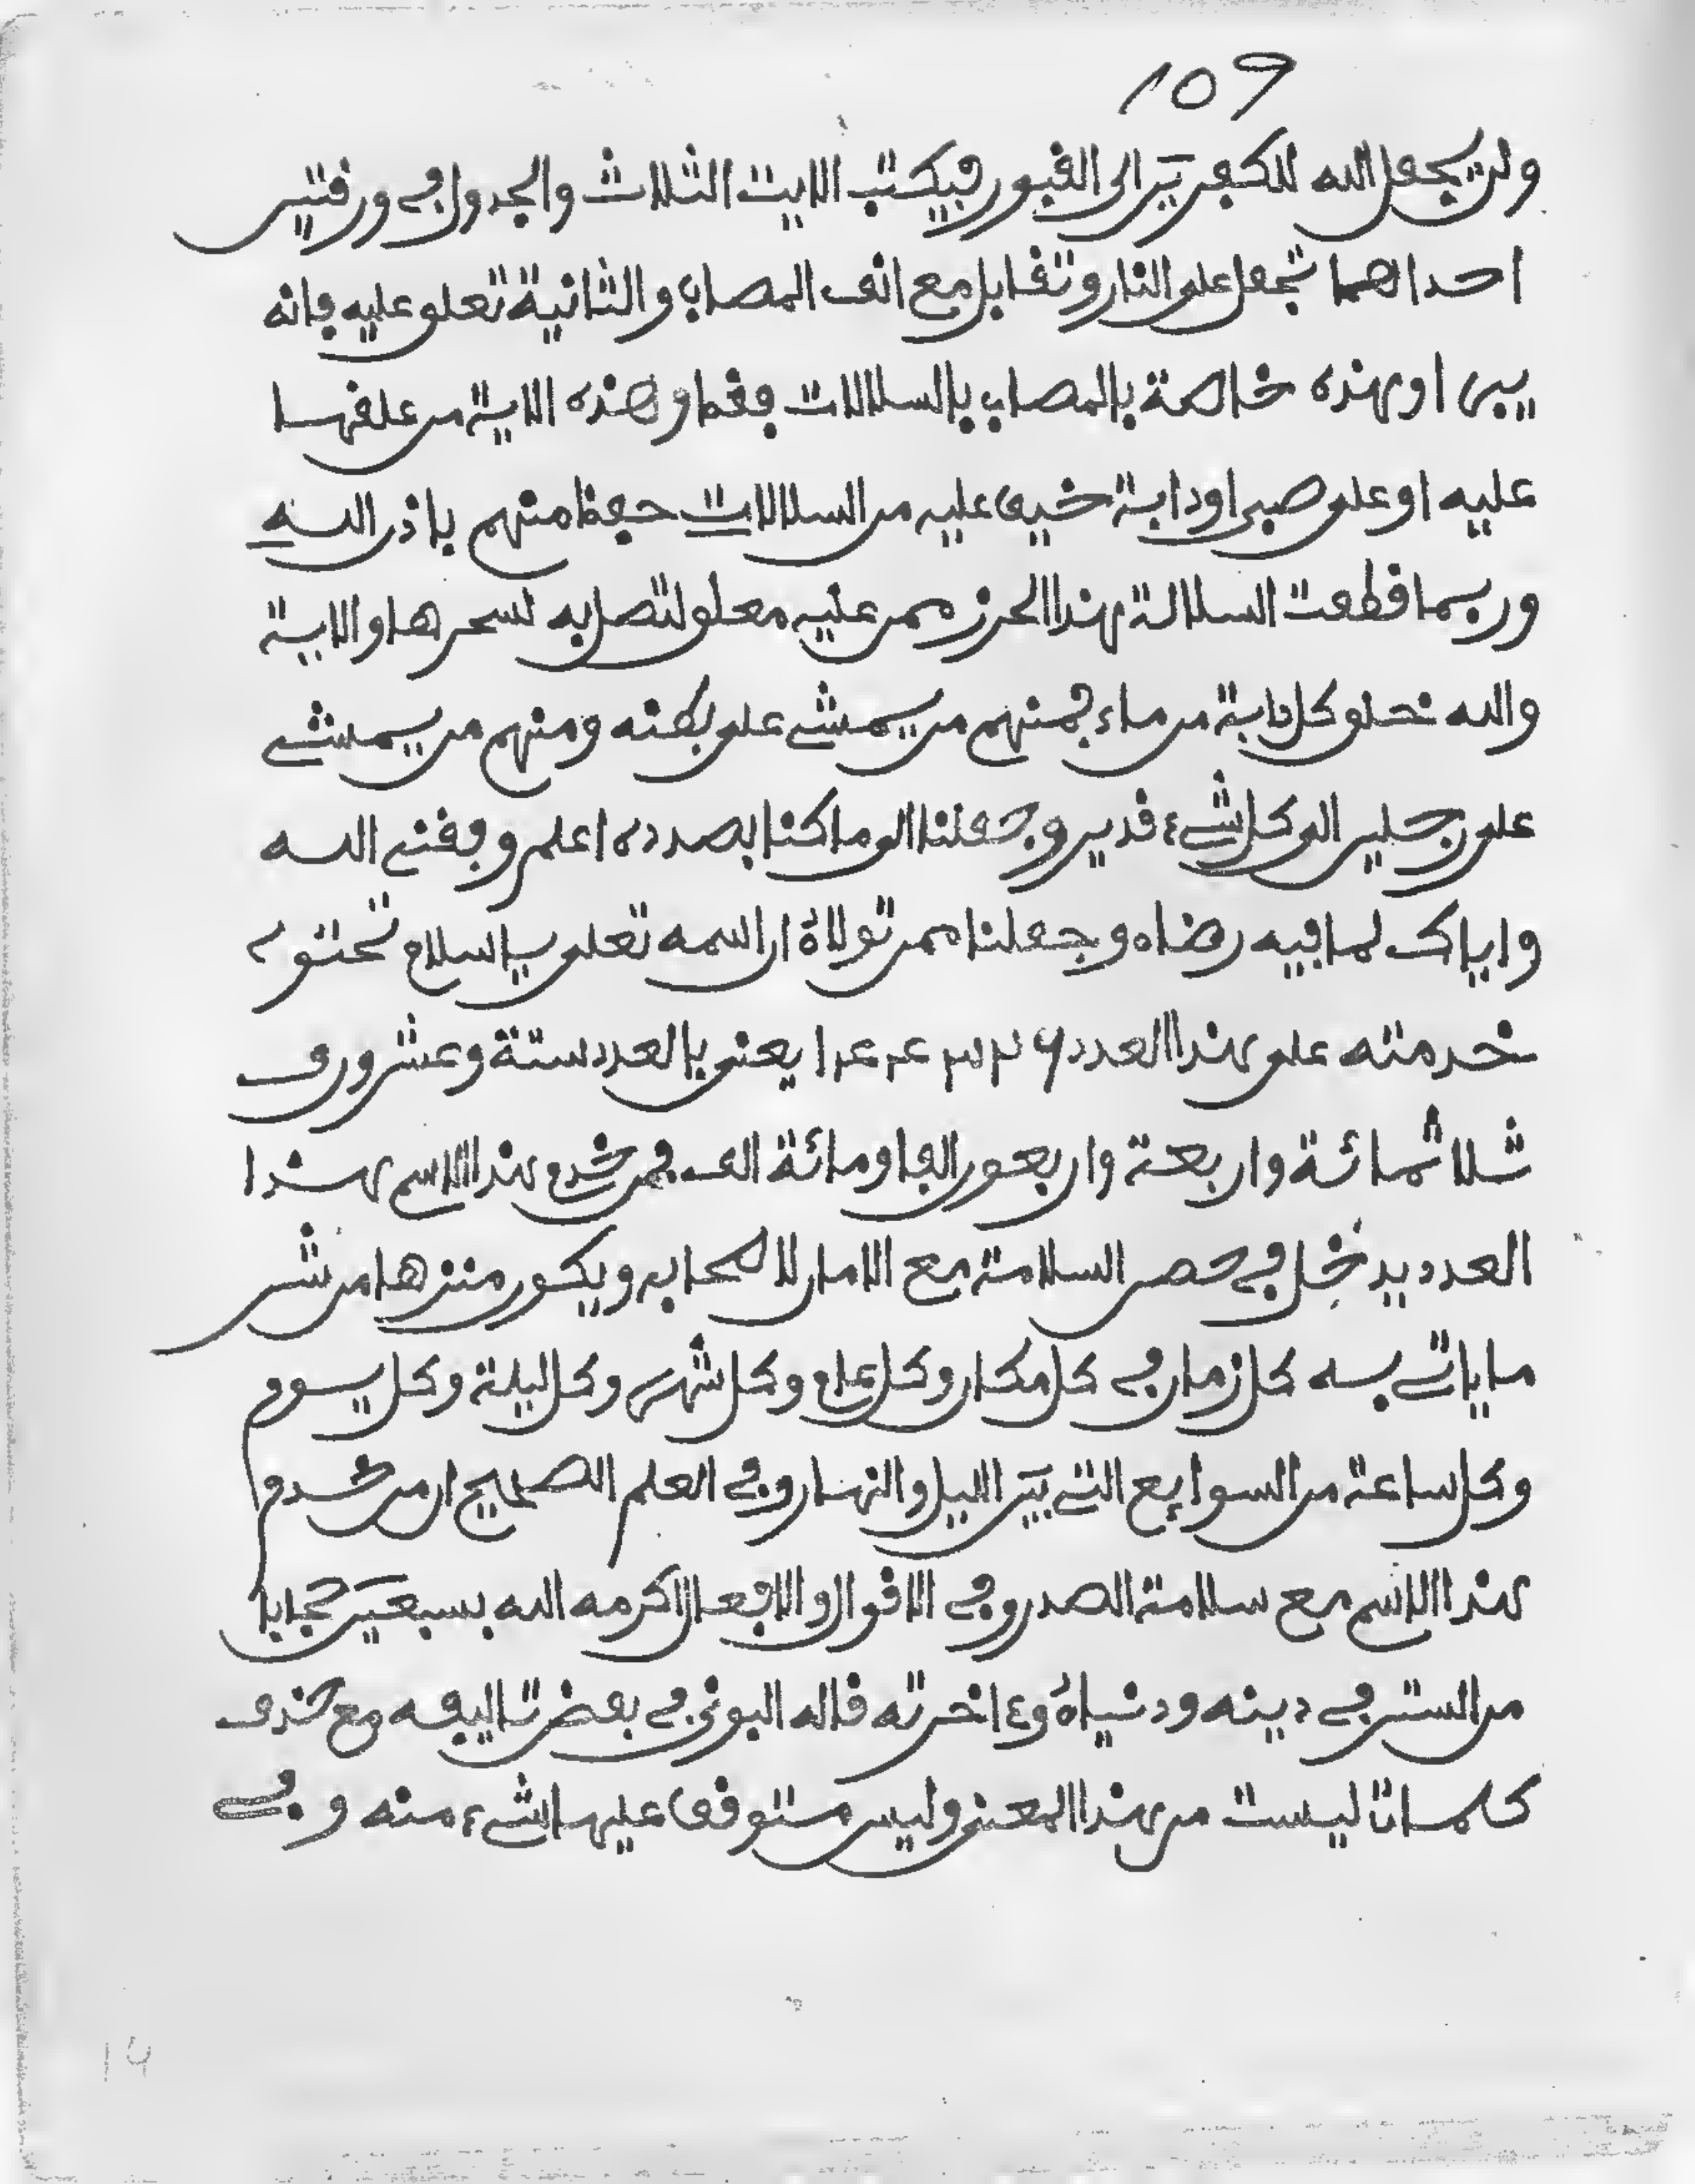 109
ولن يجعل الله للكفرين الى القبور فيكتب الايت الثلاث والجدول في ورقتين
احداهما تجعل على النار وتقابل مع انف المصاب والثانية تعلو عليه فانه
يبرا وهذه خاصة بالمصاب بالسلالات فقط وهذه الاية من علقها
عليه او على صبي او دابة خيف عليه من السلالات حفظ منهم باذن الله
وربما قطعت السلالة هذا الحرز ممن عليه معلو لتصل به لسحرها والاية
والله خلق كل دابة من ماء فمنهم من يمشي على بطنه ومنهم من يمشي
على رجلين الى كل شيء قدير وجعلنا الى ما كنا بصدده اعلم وفقني الله
واياك لما فيه رضاه وجعلنا ممن تولاه ان اسمه تعلى يا سلام تحتوي
خدمته على هذا العدد يعني بالعدد ستة وعشرون
ثلاثمائة واربعة واربعون الفا ومائة الف فمن خدم هذا الاسم بهذا
العدد يدخل في حصن السلامة مع الامان لاصحابه ويكون منزها من شر
ما ياتي به كل زمان في كل مكان وكل عام وكل شهر وكل ليلة وكل يوم
وكل ساعة من السوايع التي بين الليل والنهار وفي العلم الصحيح ان من خدم
هذا الاسم مع سلامة الصدر وفي الاقوال والافعال اكرمه الله بسبعين حجابا
من الستر في دينه ودنياه وءاخرته قاله البوني في بعض تاليفه مع حذف
كلمات ليست من هذا المعنى وليس متوقف عليها شيء منه وفي
14